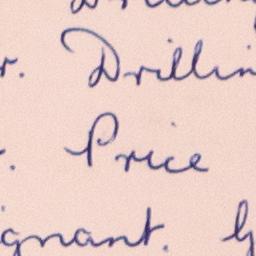 r. Drillin
. Price
gnant.